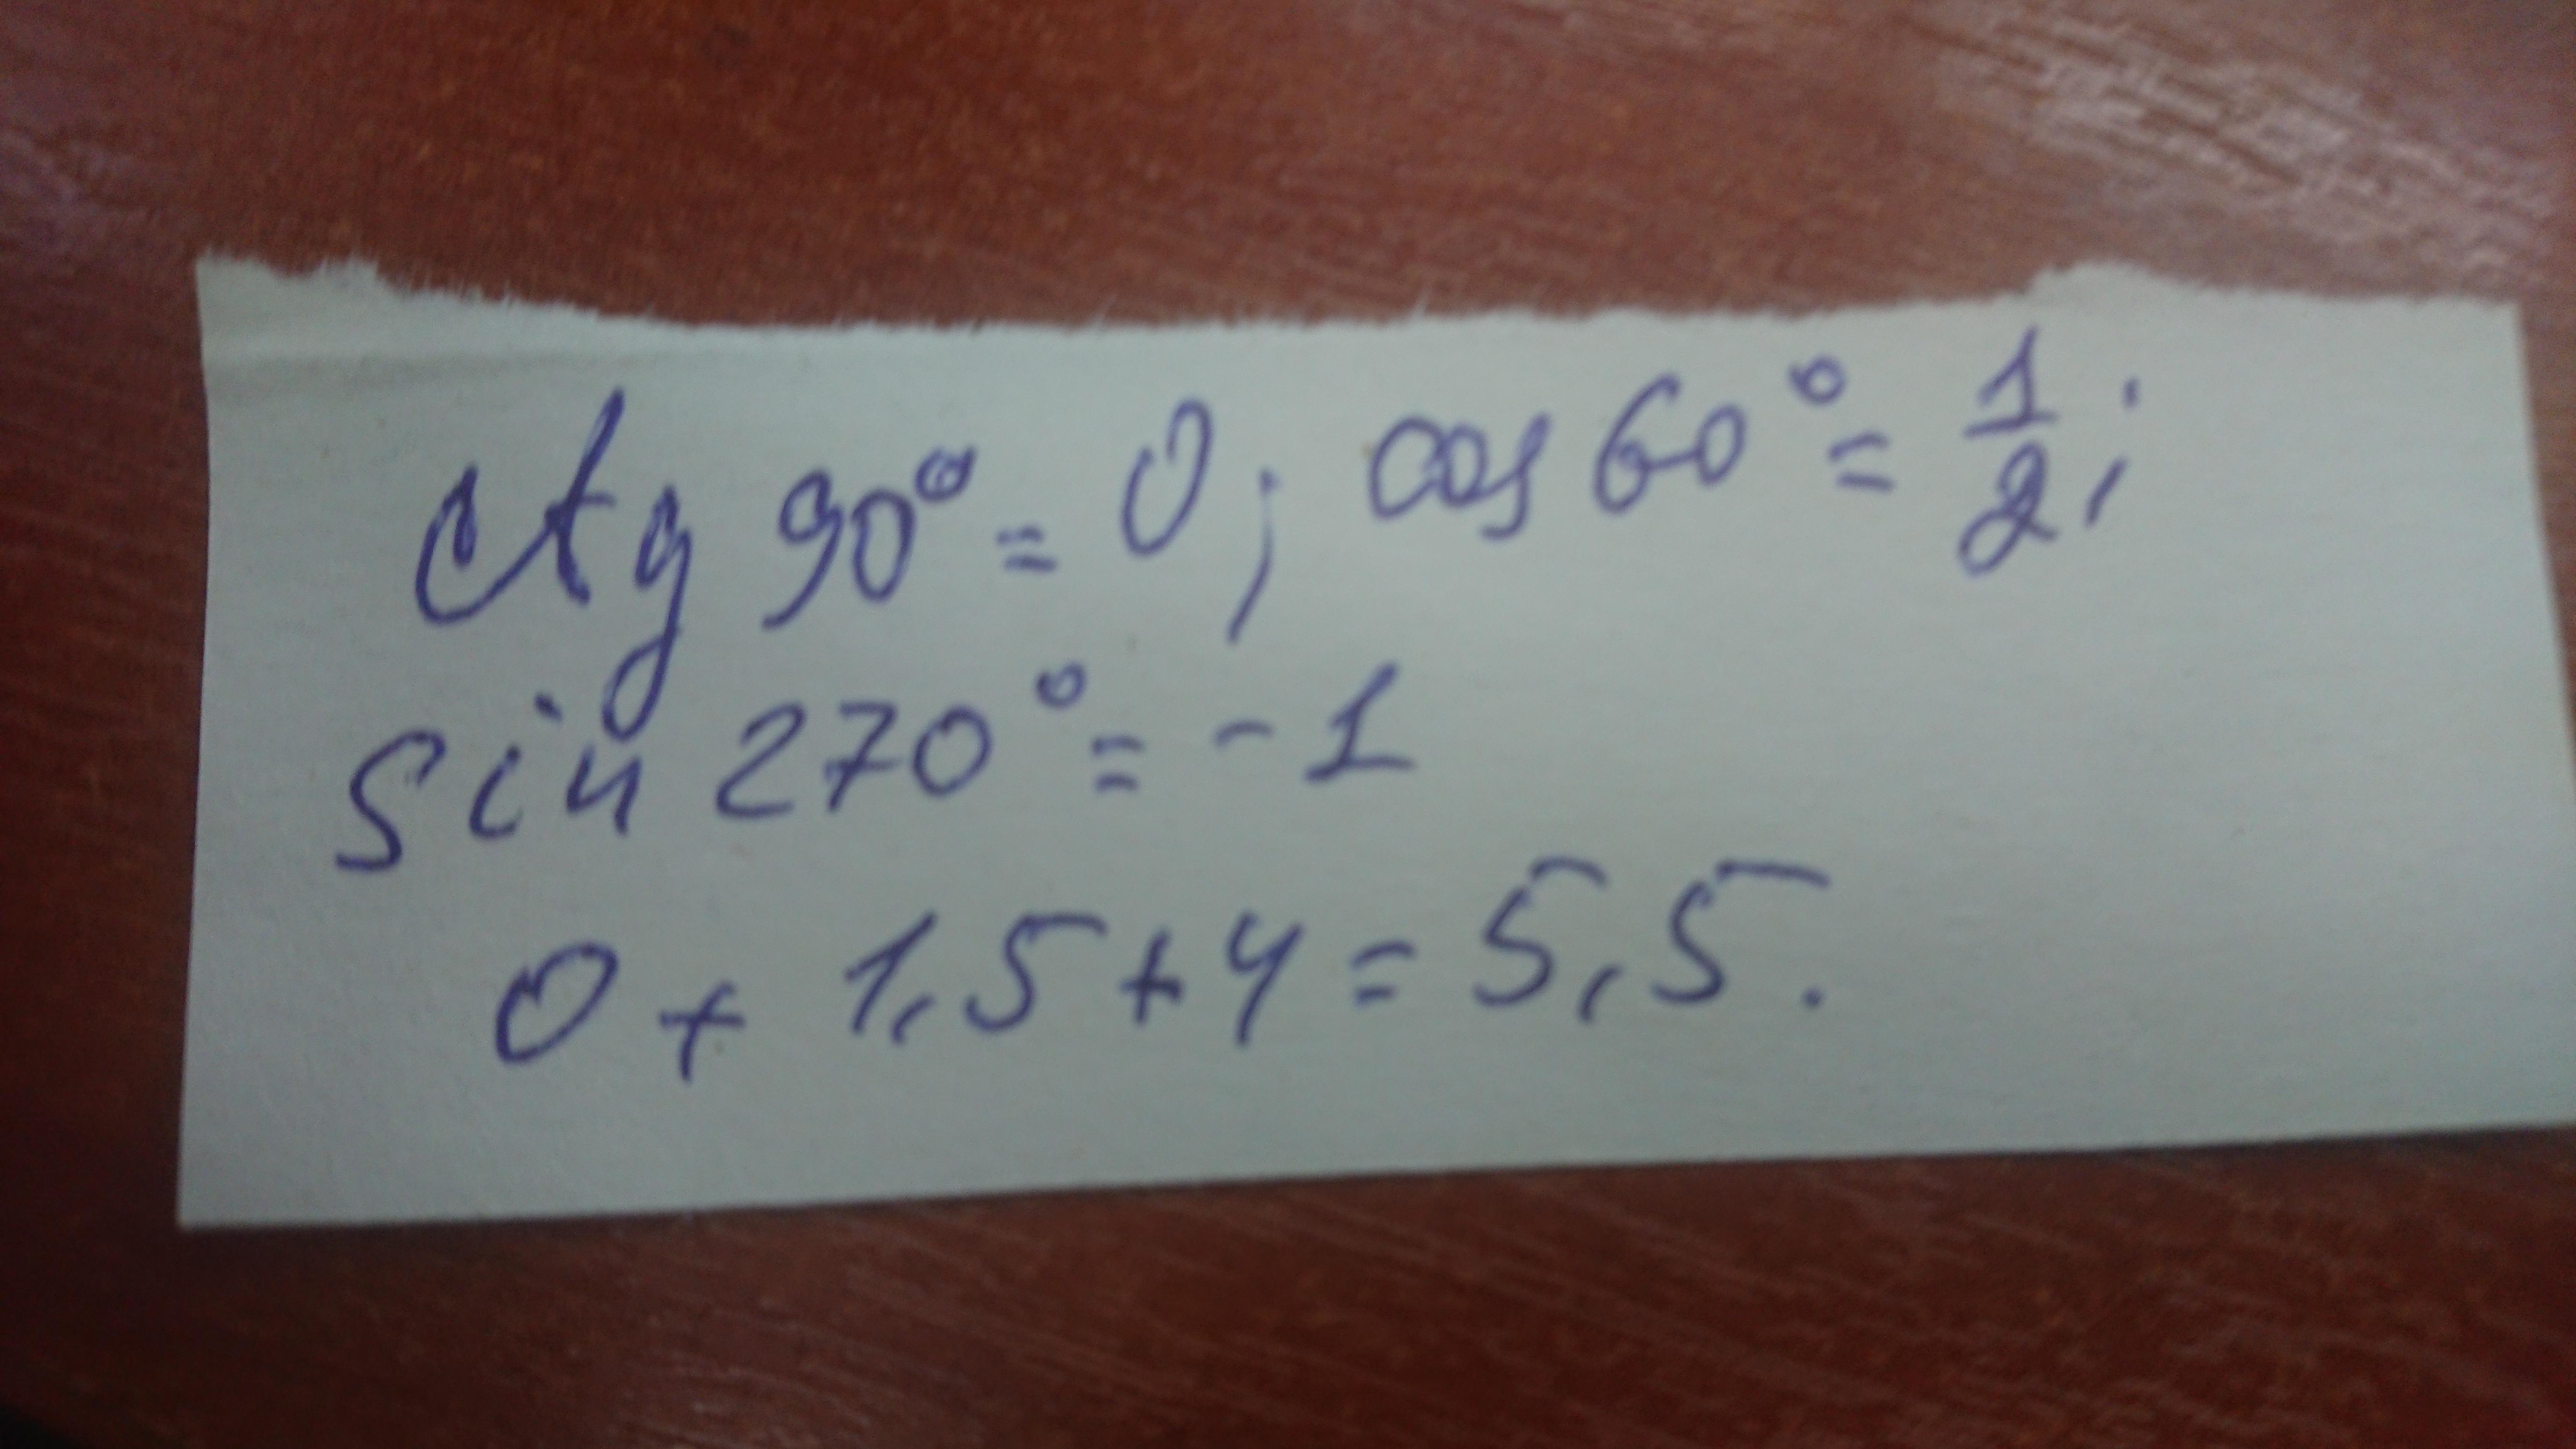 ctg 90° = 0; cos 60° = 1/2;
sin 270° = -1
0 + 1,5 + 4 = 5,5.